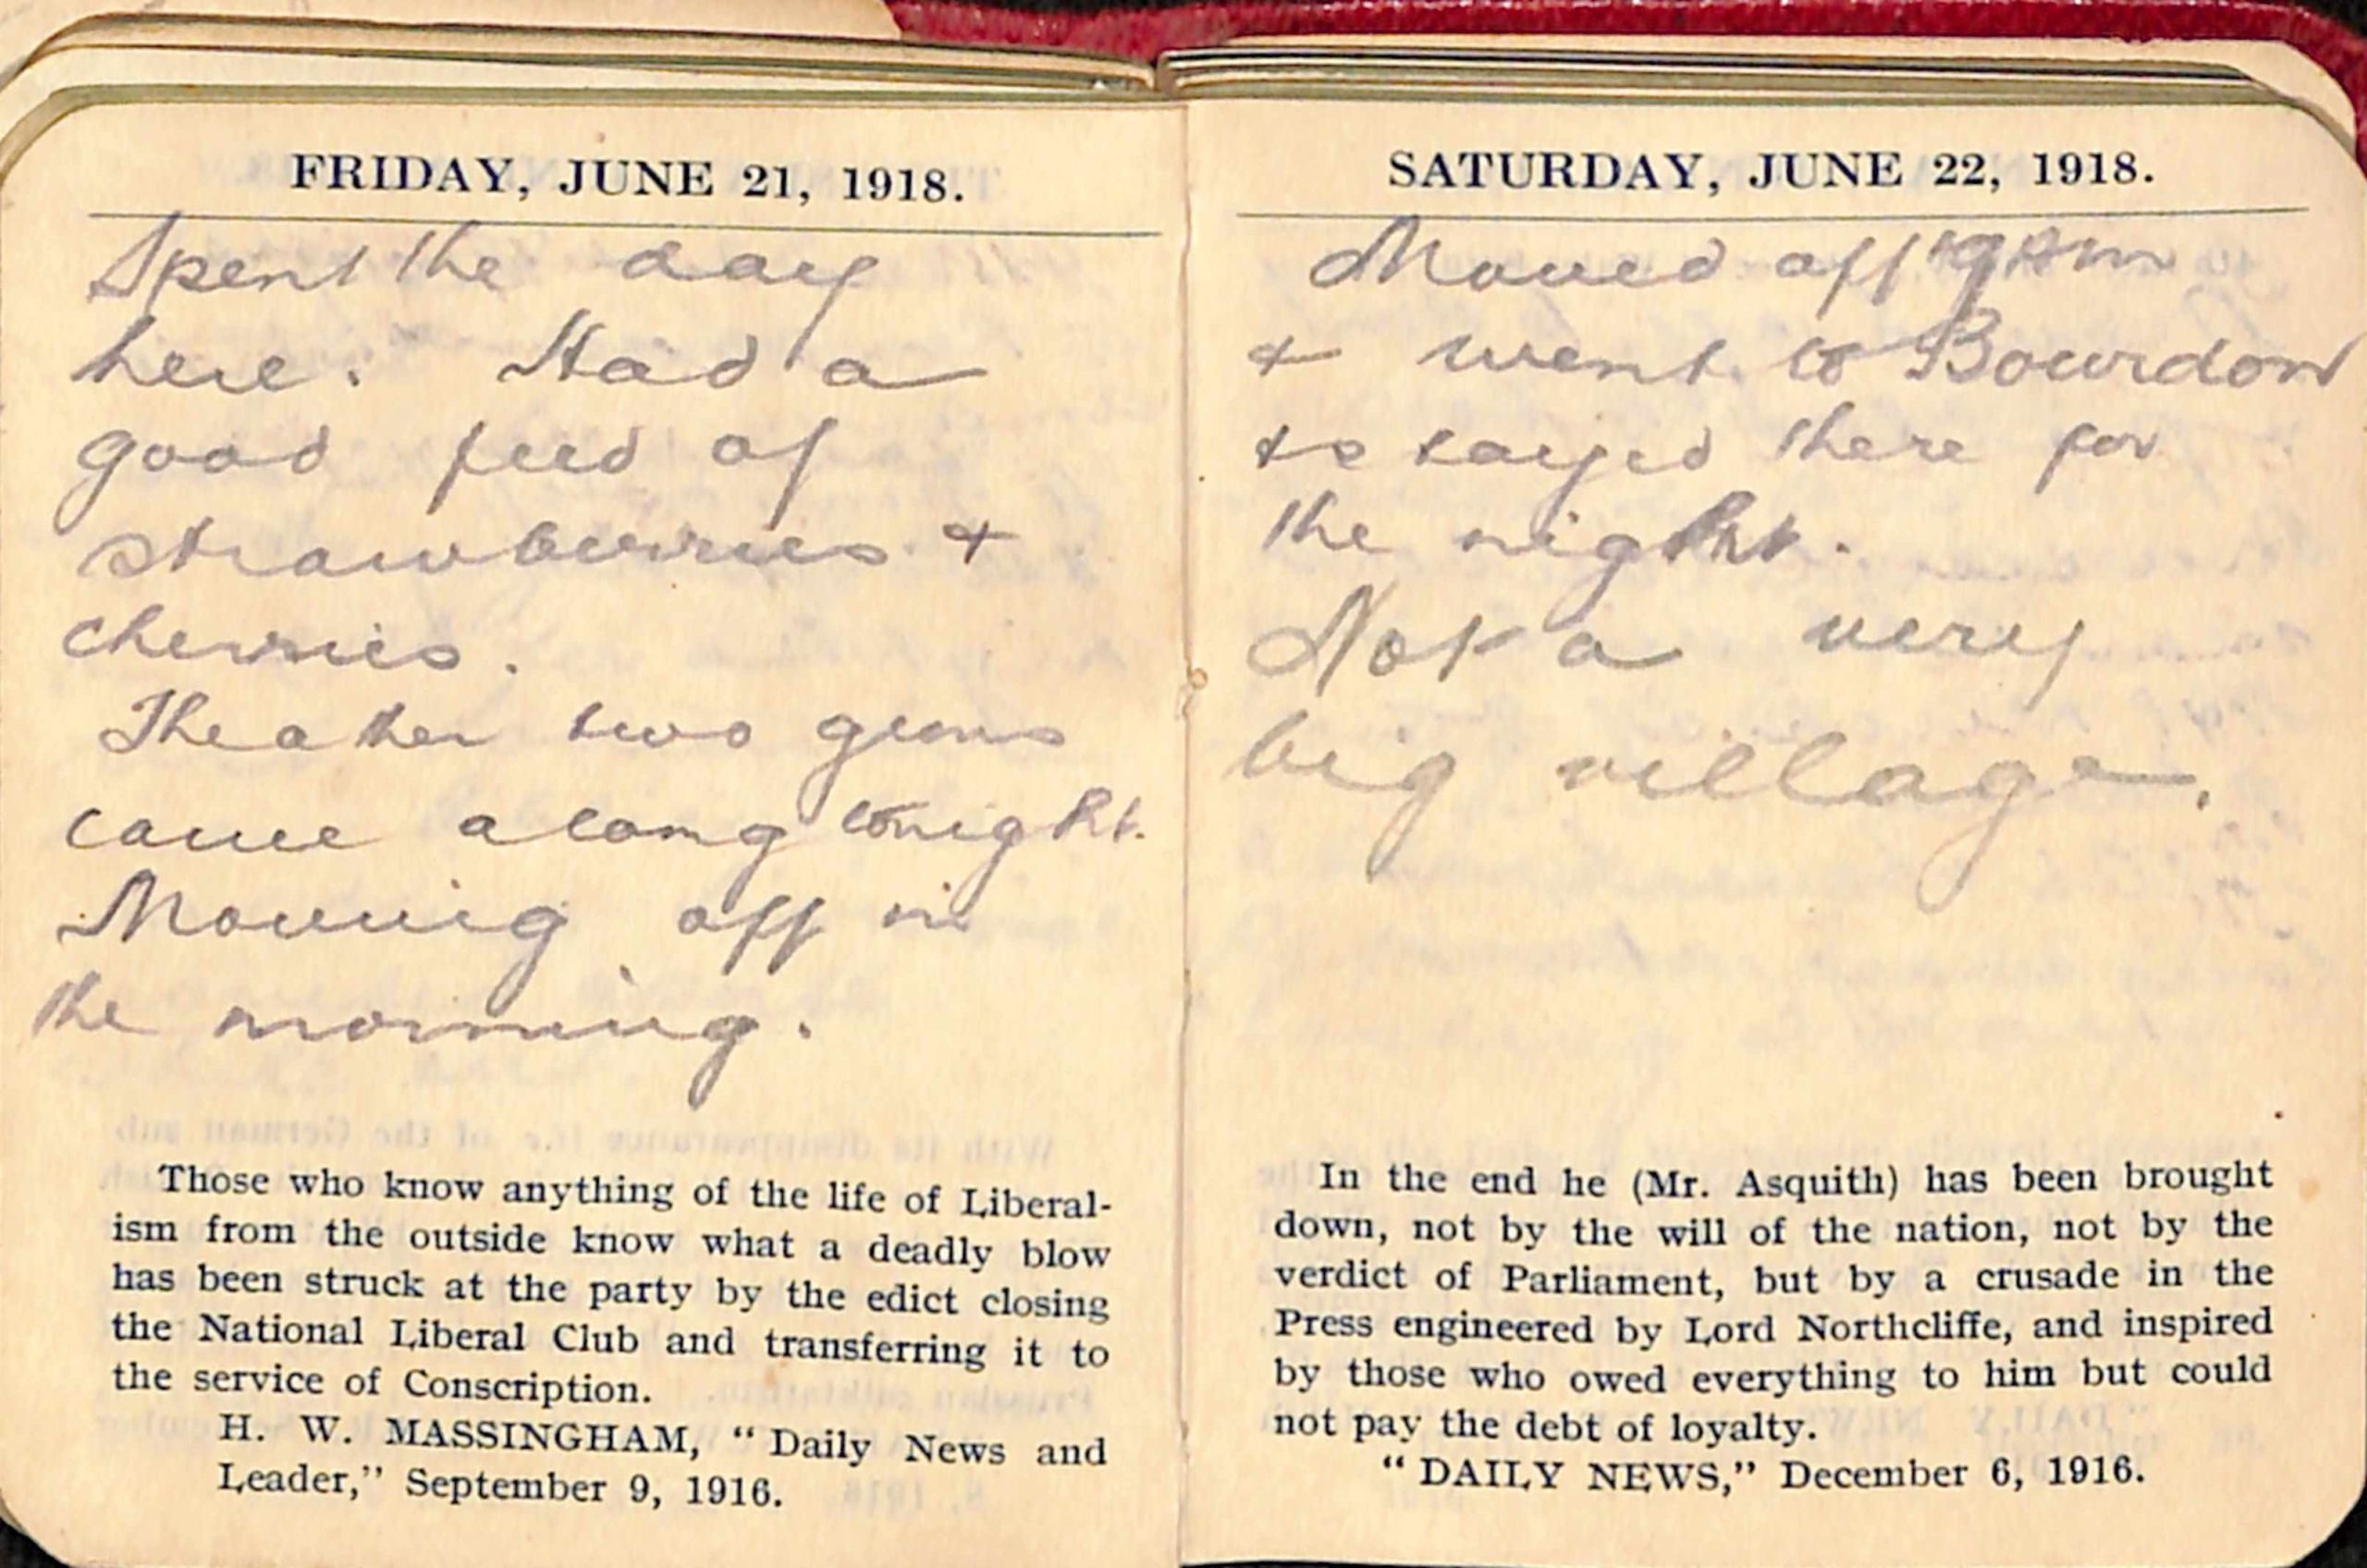 FRIDAY, JUNE 21, 1918.
Spent the day
here. Had a
good feed of
strawberries &
cherries.
The other two guns
came along tonight.
Moving off in
the morning.
Those who know anything of the life of Liberal-
ism from the outside know what a deadly blow
has been struck at the party by the edict closing
the National Liberal Club and transferring it to
the service of Conscription.
H. W. MASSINGHAM, "Daily News and
Leader," September 9, 1916.
SATURDAY, JUNE 22, 1918.
Moved off 9
& went to Bourdon
& stayed there for
the night.
Not a very
big village.
In the end he (Mr. Asquith) has been brought
down, not by the will of the nation, not by the
verdict of Parliament, but by a crusade in the
Press engineered by Lord Northcliffe, and inspired
by those who owed everything to him but could
not pay the debt of loyalty.
"DAILY NEWS," December 6, 1916.